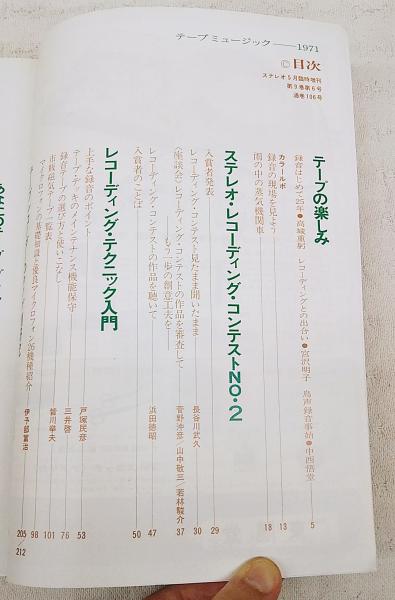 テープミュージック——1971
©目次
ステレオ5月臨時増刊
第9巻第6号
通巻106号
テープの楽しみ
録音はじめて25年●高城重躬 レコーディングとの出合い●宮沢明子 鳥声録音事始●中西悟堂 5
カラールポ
録音の現場を見よう 13
雨の中の蒸気機関車 18
ステレオ・レコーディング・コンテストNO・2
入賞者発表 29
レコーディング・コンテスト見たまま聞いたまま 長谷川武久 30
〈座談会〉レコーディング・コンテストの作品を審査して
——もう一歩の創意工夫を—— 菅野沖彦/山中敬三/若林駿介 37
レコーディング・コンテストの作品を聴いて 浜田徳昭 47
入賞者のことば 50
レコーディング・テクニック入門
上手な録音のポイント 戸塚民彦 53
テープ・デッキのメインテナンス機能保守 三井啓 76
録音テープの選び方と使いこなし 皆川挙夫 101
市販磁気テープ一覧表 98
マイクロフォンの基礎知識と優良マイクロフォン26機種紹介 伊予部富治 205/212